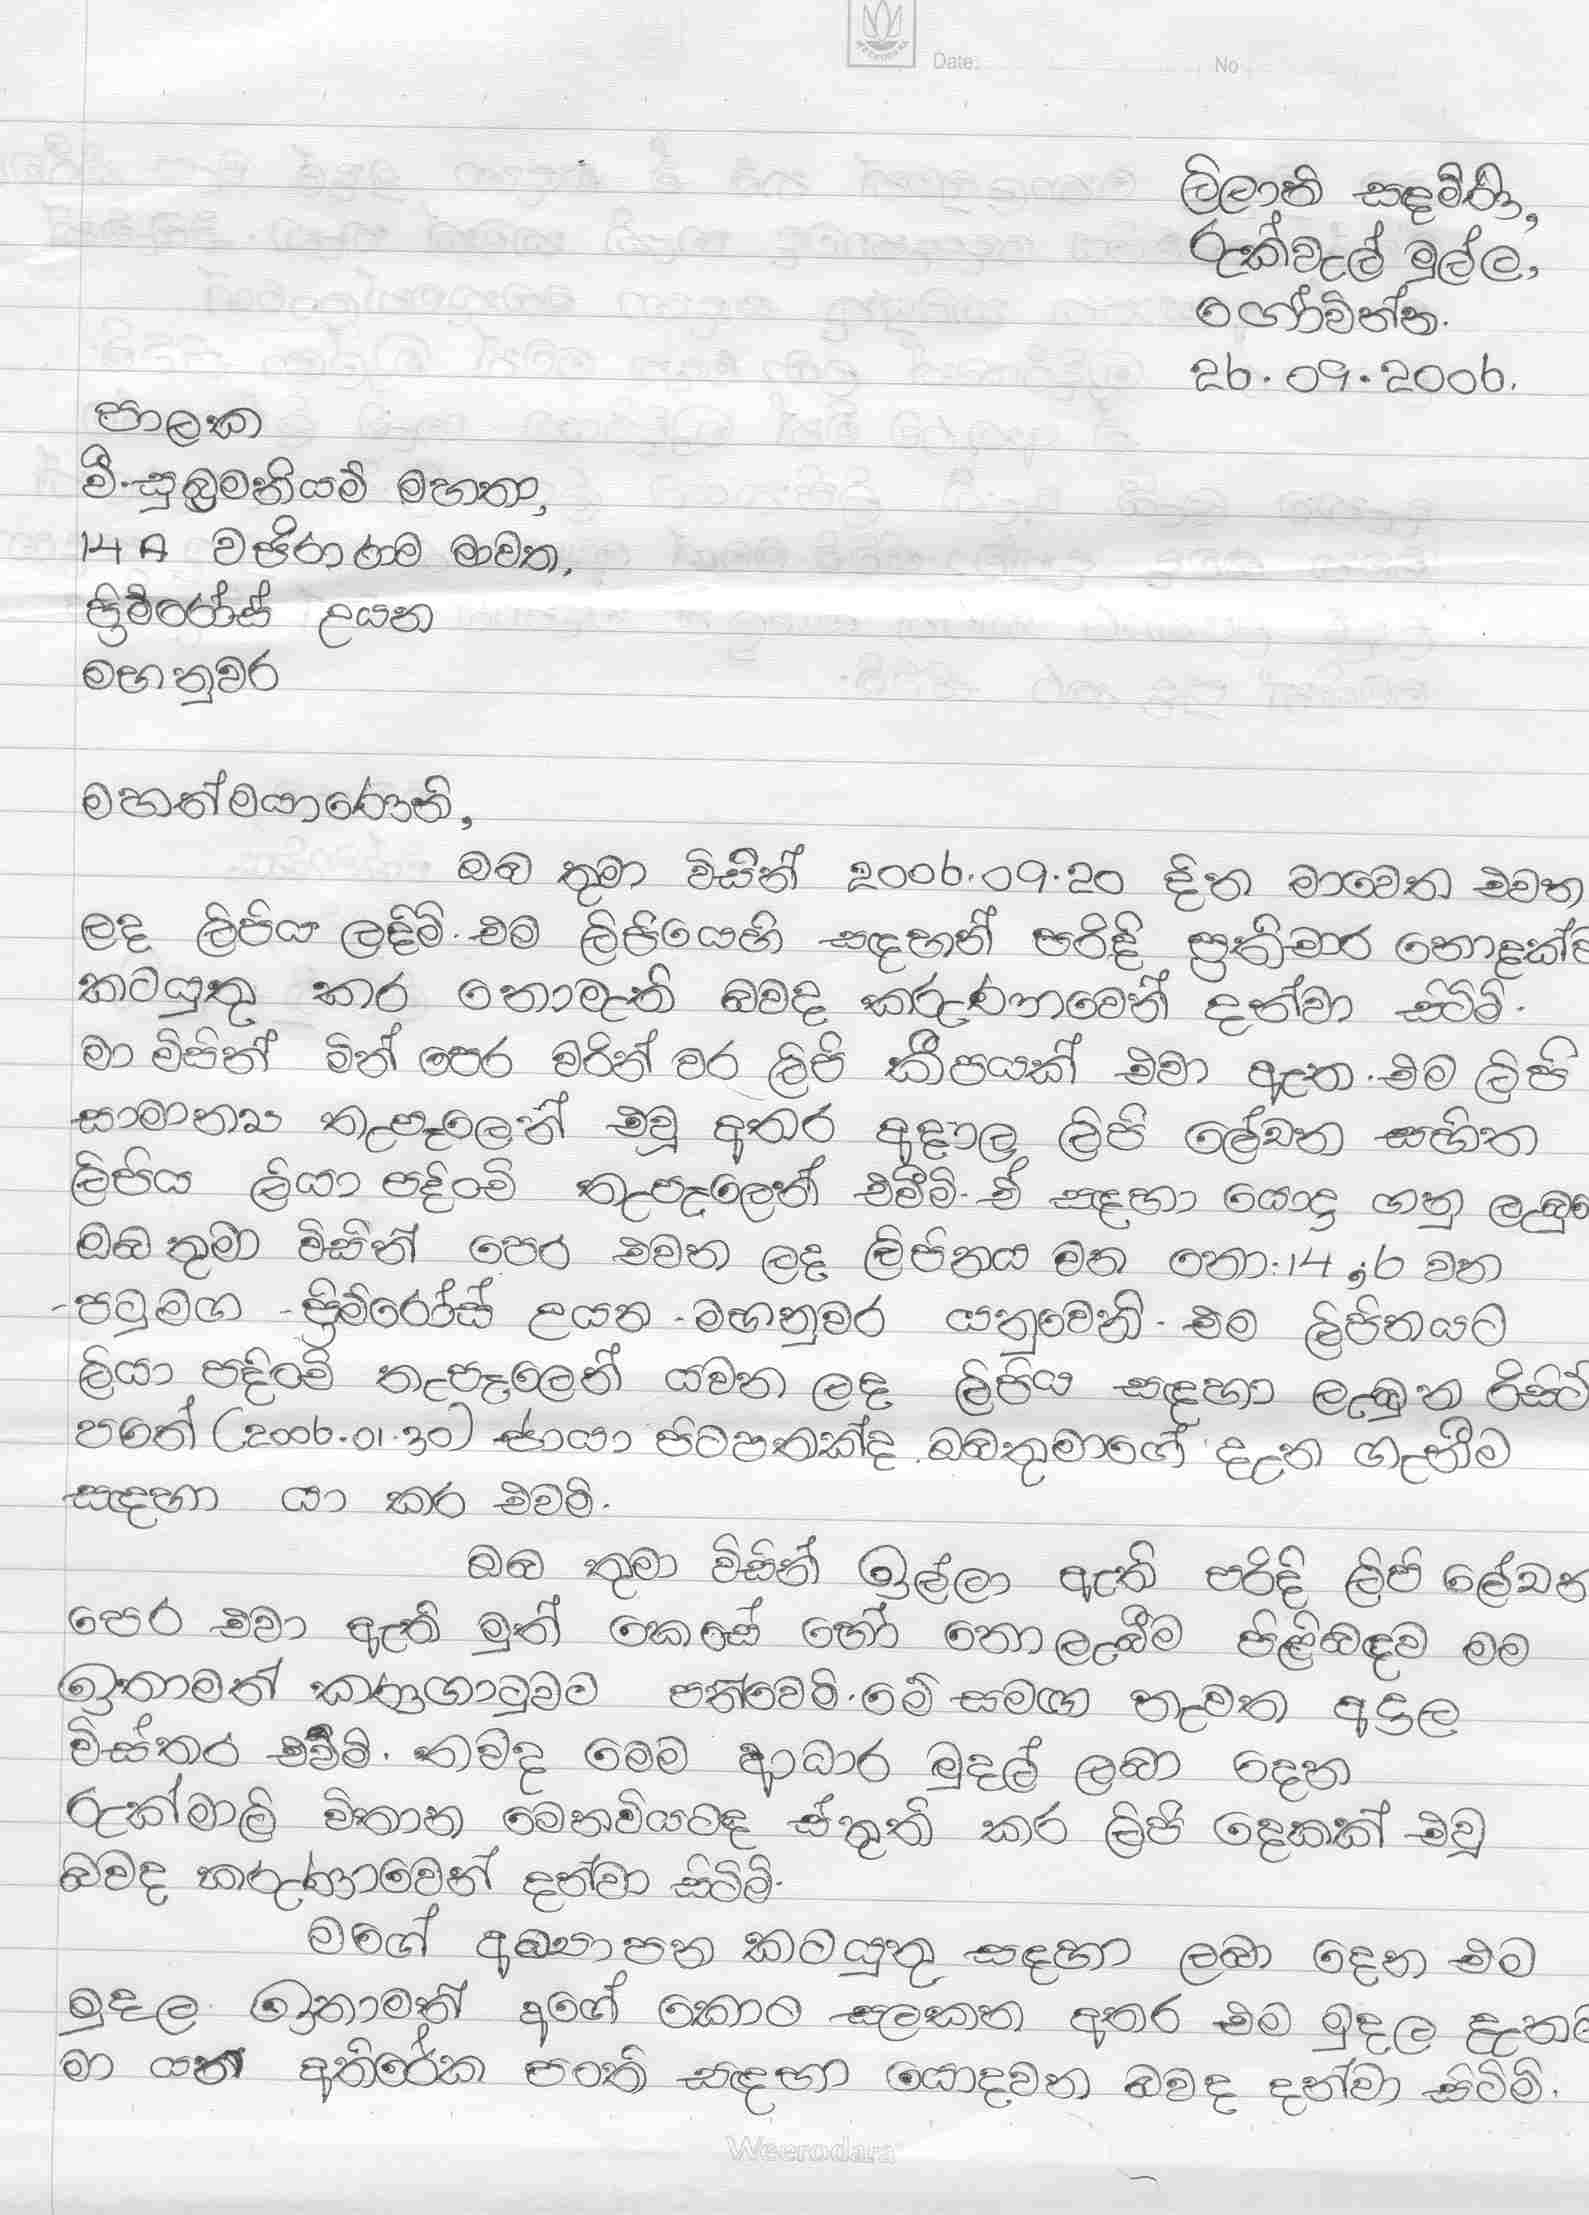 Date: No
ලිලානි සඳමිණි,
රුක්වැල් මුල්ල,
ගෝවින්න.
26.09.2006.
පාලක
වී.සුබ්‍රමනියම් මහතා,
14 A වජිරාරාම මාවත,
ප්‍රිම්රෝස් උයන
මහනුවර
මහත්මයාණෙනි,
ඔබ තුමා විසින් 2006.09.20 දින මාවෙත එවන
ලද ලිපිය ලදිමි. එම ලිපියෙහි සඳහන් පරිදි ප්‍රතිචාර නොදක්වා
කටයුතු කර නොමැති බවද කරුණාවෙන් දන්වා සිටිමි.
මා විසින් මින් පෙර වරින් වර ලිපි කීපයක් එවා ඇත. එම ලිපි
සාමාන්‍ය තැපෑලෙන් එවූ අතර අදාල ලිපි ලේඛන සහිත
ලිපිය ලියා පදිංචි තැපෑලෙන් එවීමි. ඒ සඳහා යොදා ගනු ලැබුවේ
ඔබ තුමා විසින් පෙර එවන ලද ලිපිනය වන නො:14, 6 වන
-පටුමග - ප්‍රිම්රෝස් උයන - මහනුවර යනුවෙනි. එම ලිපිනයට
ලියා පදිංචි තැපෑලෙන් යවන ලද ලිපිය සඳහා ලැබුන රිසිට්
පතේ (2006.01.30) ඡායා පිටපතක්ද ඔබතුමාගේ දැන ගැනීම
සඳහා යා කර එවමි.
ඔබ තුමා විසින් ඉල්ලා ඇති පරිදි ලිපි ලේඛන
පෙර එවා ඇති මුත් කෙසේ හෝ නොලැබීම පිළිබඳව මම
ඉතාමත් කණගාටුවට පත්වෙමි. මේ සමඟ නැවත අදාල
විස්තර එවීමි. තවද මෙම ආධාර මුදල් ලබා දෙන
රුක්මාලි විතාන මෙනවියටද ස්තුති කර ලිපි දෙකක් එවූ
බවද කරුණාවෙන් දන්වා සිටිමි.
මගේ අධ්‍යාපන කටයුතු සඳහා ලබා දෙන එම
මුදල ඉතාමත් අගේ කොට සලකන අතර එම මුදල දැනට
මා යන අතිරේක පංති සඳහා යොදවන බවද දන්වා සිටිමි.
Weerodara